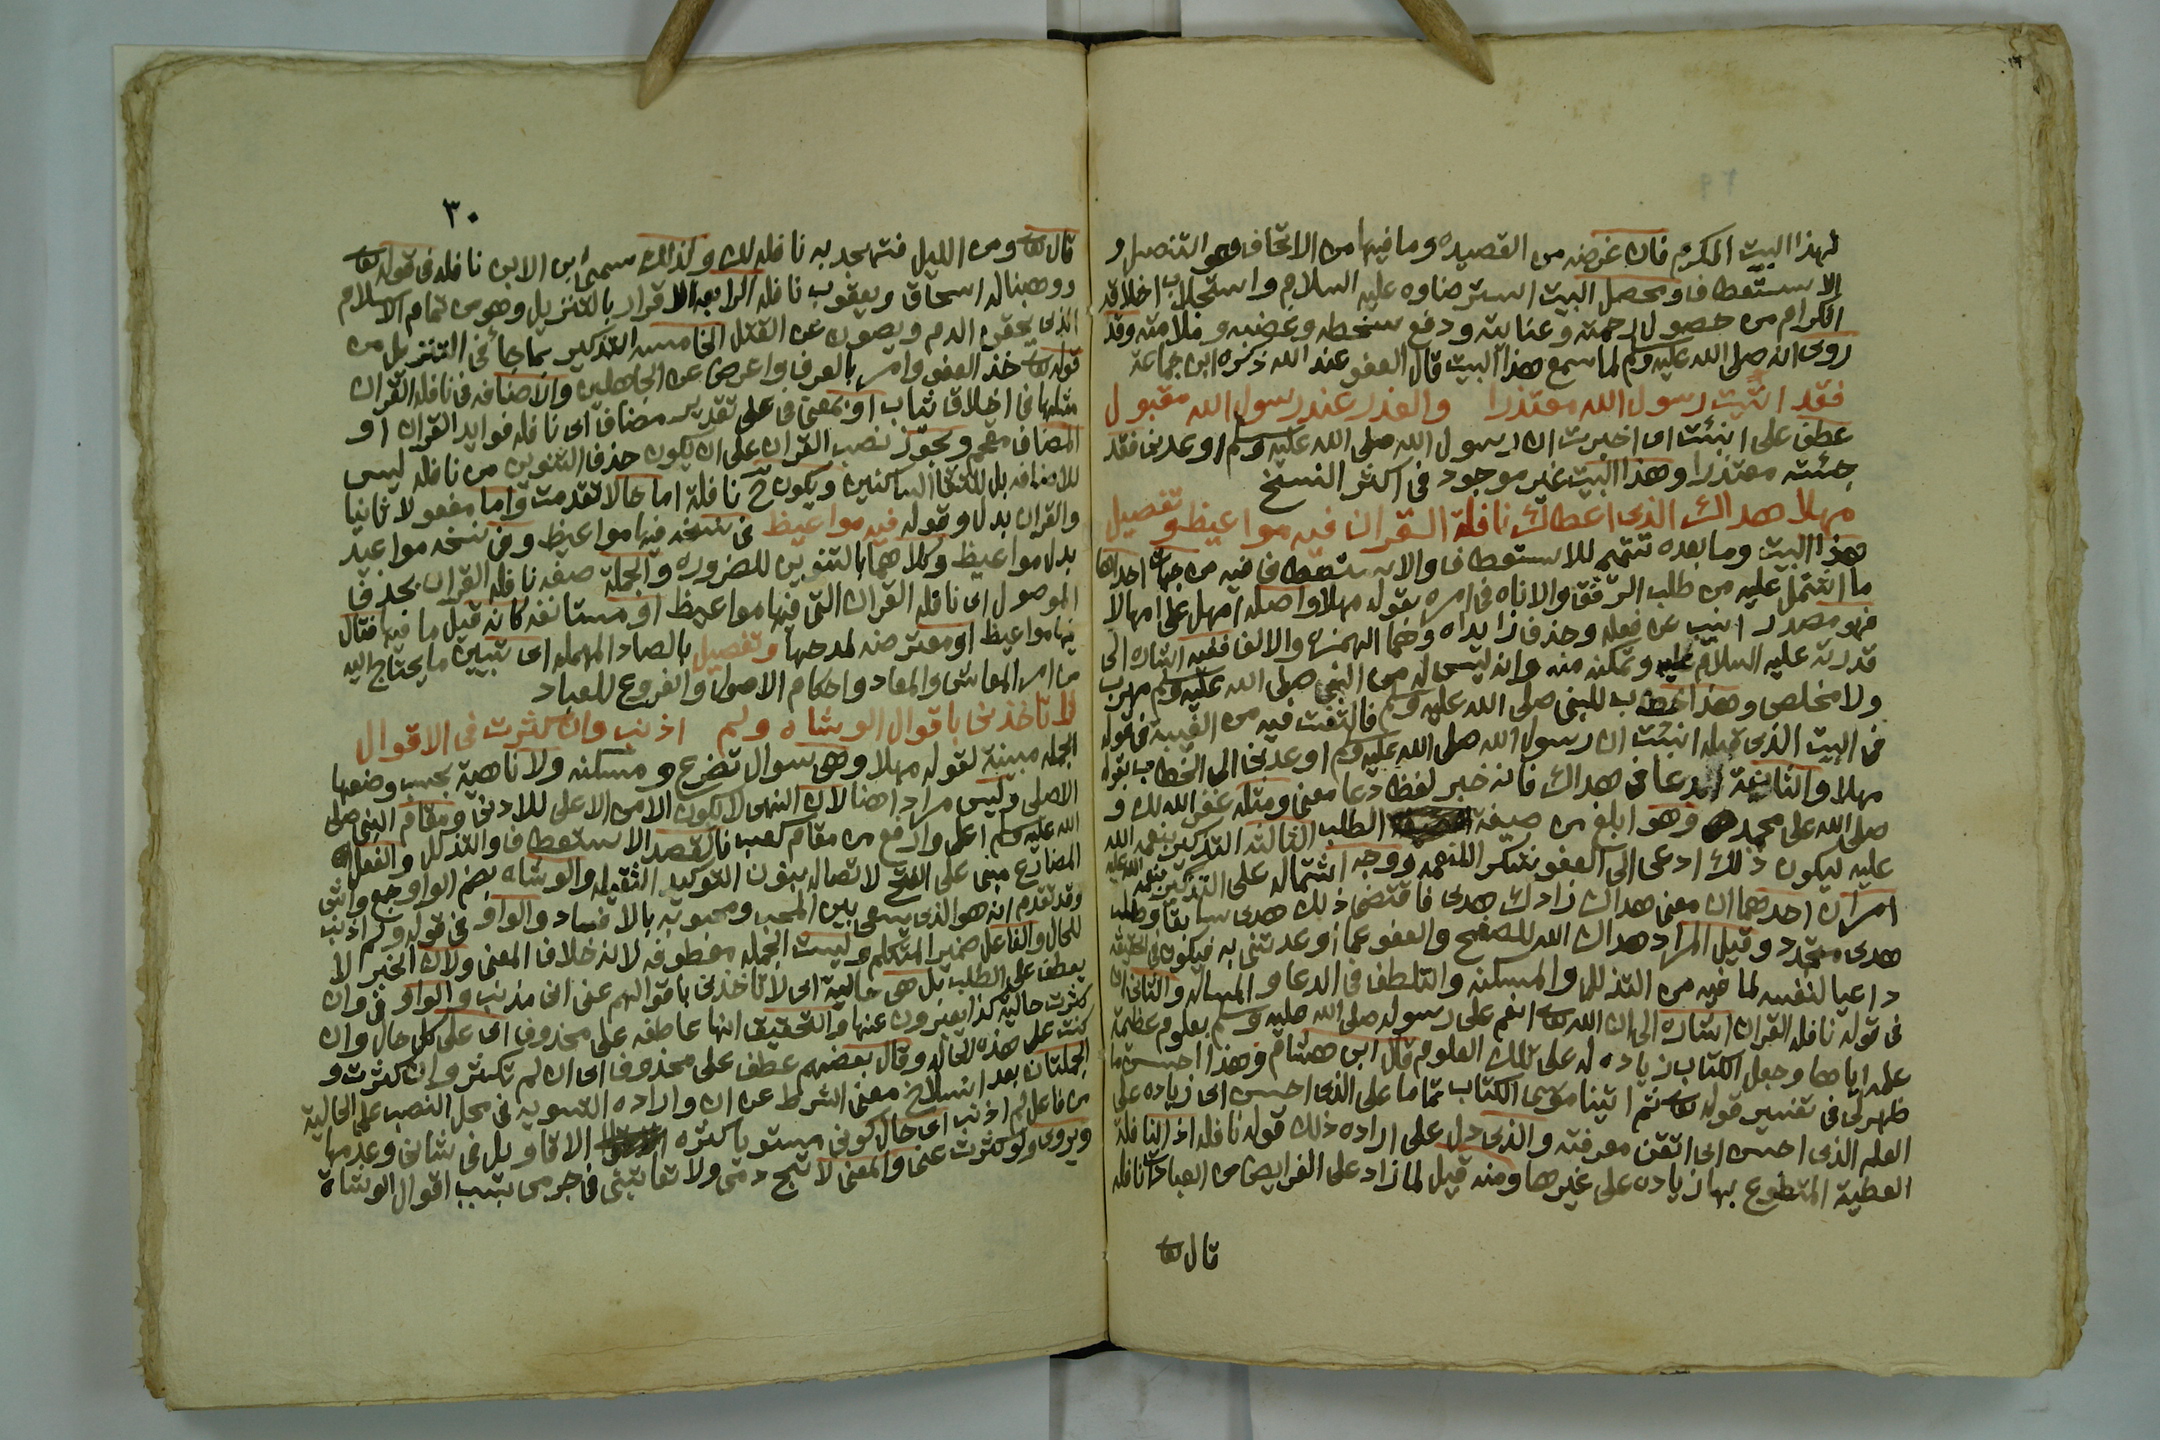 لهذا البيت المكرم فان غرضه من القصيده وما فيها من الاتحاف وهو التنصل و
الاستعطاف ومحصل البيت استرضاوه عليه السلام واستجلاب اخلاقه
الكرام من حصول رحمته وعنايته ودفع سخطه وغضبه وملامته وقد
روى انه صلى الله عليه وسلم لما سمع هذا البيت قال العفو عند الله ذكره ابن جماعة
فقد اتيت رسول الله معتذرا والعذر عند رسول الله مقبول
عطف على انبئت اى اخبرت ان رسول الله صلى الله عليه وسلم اوعدنى فقد
جئته معتذرا وهذا البيت غير موجود فى اكثر النسخ
مهلا هداك الذى اعطاك نافلة القران فيه مواعيظ وتفصيل
هذا البيت وما بعده تتميم للاستعطاف والاستعطاف فيه من جهات احداها
ما اشتمل عليه من طلب الرفق والاناه فى امره بقوله مهلا واصله امهل على امهالا
فهو مصدر انيب عن فعله وحذف زايداه وهما الهمزة والالف ففيه اشاره الى
قدرته عليه السلام عليه وتمكنه منه وانه ليس له من النبى صلى الله عليه وسلم مهرب
ولا مخلص وهذا خطاب للنبى صلى الله عليه وسلم فالتفت فيه من الغيبة فى قوله
فى البيت الذى قبله انبئت ان رسول الله صلى الله عليه وسلم اوعدنى الى الخطاب بقوله
مهلا والثانية الدعا فى هداك فانه خبر لفظا دعا معنى ومثله غفر الله لك و
صلى الله على محمد وهو ابلغ من صيغة الطلب الثالثة التذكير بنعمة الله
عليه ليكون ذلك ادعى الى العفو شكر المنعمه ووجه اشتماله على التذكير بنعمة الله عليه
امران احدهما ان معنى هداك زادك هدى فاقتضى ذلك هدى سابقا وطلب
هدى متجدد وقيل المراد هداك الله للصفح والعفو عما اوعدتنى به فيكون فى الحقيقة
داعيا لنفسه لما فيه من التذلل والمسكنه والتلطف فى الدعا والمساله والثانى ان
فى قوله نافلة القران اشاره الى ان الله تعالى انعم على رسوله صلى الله عليه وسلم بعلوم عظيمة
علمه اياها وجعل الكتاب زياده له على تلك العلوم قال ابن هشام وهذا احسن ما
ظهر لى فى تفسير قوله تعالى ثم اتينا موسى الكتاب تماما على الذى احسن اى زياده على
العلم الذى احسن اى اتقن معرفته والذى دل على اراده ذلك قوله نافله اذ النافلة
العطية المتطوع بها زياده على غيرها ومنه قيل لما زاد على الفرايض من العبادات نافله
قال تعالى
٣٠
قال تعالى ومن الليل فتهجد به نافلة لك وكذلك سمى ابن الابن نافله فى قوله تعالى
ووهبنا له اسحاق ويعقوب نافله الرابعه الاقرار بالتنزيل وهو من تمام الاسلام
الذى يحقن الدم ويصون عن القتل الخامسه التذكير بما جاء فى التنزيل من
قوله تعالى خذ العفو وامر بالعرف واعرض عن الجاهلين والاضافه فى نافله القران
مثلها فى اخلاق ثياب او بمعنى فى على تقدير مضاف اى نافله فوايد القران او
المضاف مقحم ويجوز نصب القران على ان يكون حذف التنوين من نافله ليس
للاضافه بل للتقا الساكنين ويكون ح نافلة اما حالا تقدمت واما مفعولا ثانيا
والقران بدل وقوله فيه مواعيظ فى نسخه فيها مواعيظ وفى نسخه مواعيد
بدل مواعيظ وكلاهما بالتنوين للضروره والجملة صفه نافله القران بحذف
الموصول اى نافله القران التى فيها مواعيظ او مستانفه كانه قيل ما فيها فقال
فيها مواعيظ او معترضه لمدحها وتفصيل بالصاد المهمله اى تبيين ما يحتاج اليه
من امر المعاش والمعاد واحكام الاصول والفروع للعباد
لا تاخذنى باقوال الوشاه ولم اذنب وان كثرت فى الاقوال
الجمله مبينة لقوله مهلا وهى سوال تضرع ومسكنه ولا ناهية بحسب وضعها
الاصلى وليس مرادا هنا لان النهى لا يكون الا من الاعلى للادنى ومقام النبى صلى
الله عليه وسلم اعلى وارفع من مقام كعب فالقصد الاستعطاف والتذلل والفعل
المضارع مبنى على الفتح لاتصاله بنون التوكيد الثقيله والوشاه بضم الواو جمع واش
وقد تقدم انه هو الذى يسعى بين المحب ومحبوبه بالافساد والواو فى قوله ولم اذنب
للحال والفاعل ضمير المتكلم وليست الجمله معطوفه لانه خلاف المعنى ولان الخبر لا
يعطف على الطلب بل هى حالية اى لا تاخذنى باقوالهم عنى انى مذنب والواو فى وان
كثرت حالية كذا يعبرون عنها والتحقيق انها عاطفه على محذوف اى على كل حال وان
كنت على هذه الحاله وقال بعضهم عطف على محذوف اى ان لم تكثر وان كثرت و
الجملتان بعد انسلاخ معنى الشرط عن ان واراده التسويه فى محل النصب على الحالية
من فاعل لم اذنب اى حال كونى مستويا كثره الاقاويل فى شانى وعدمها
ويروى ولو كثرت عنى والمعنى لا تبح دمى ولا تعاتبنى فى جرمى بسبب اقوال الوشاة